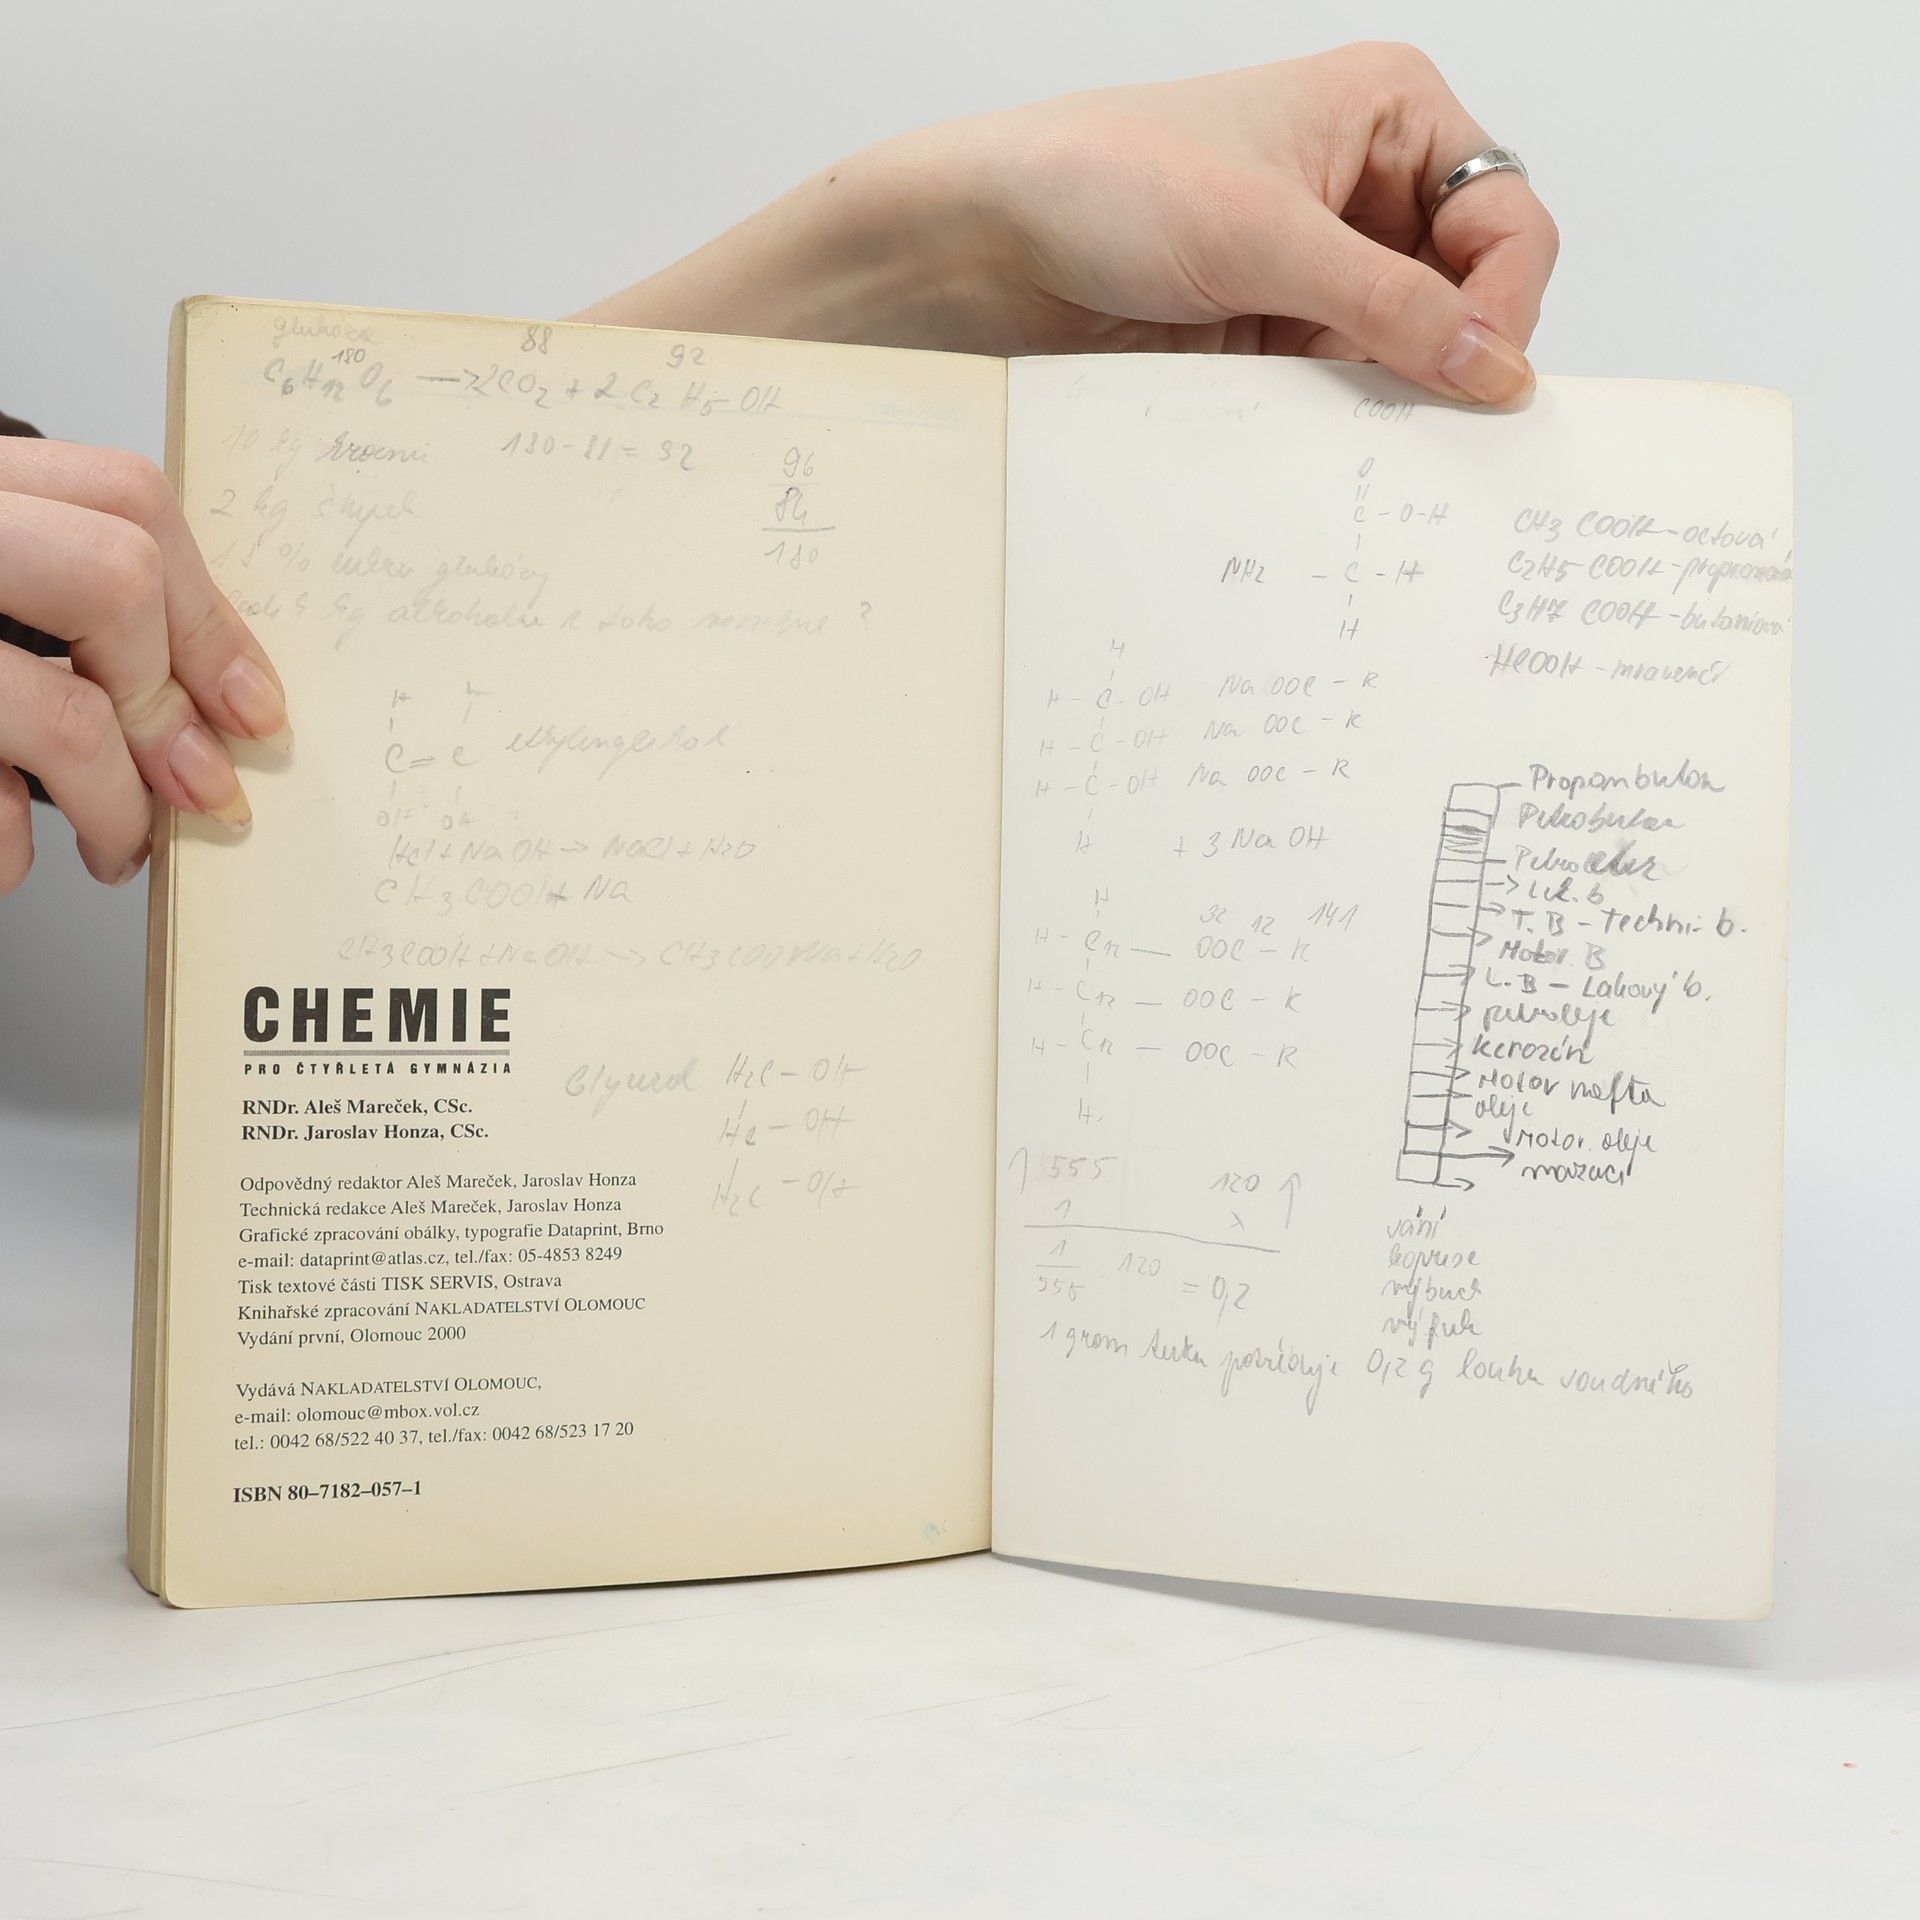 glukóza
88
92
180
C6H12O6 → 2CO2 + 2 C2 H5-OH
10 kg hroznů
180-88 = 92
96
84
180
2 kg
13 % cukru glukózy
kg alkoholu z toho vznikne ?
H H
C = C ethylenglikol
OH OH
HCl + NaOH → NaCl + H2O
CH3COOH + Na
CH3COOH + NaOH → CH3COONa + H2O
CHEMIE
PRO ČTYŘLETÁ GYMNÁZIA
RNDr. Aleš Mareček, CSc.
RNDr. Jaroslav Honza, CSc.
Glycerol H2C - OH
HC - OH
H2C - OH
Odpovědný redaktor Aleš Mareček, Jaroslav Honza
Technická redakce Aleš Mareček, Jaroslav Honza
Grafické zpracování obálky, typografie Dataprint, Brno
e-mail: dataprint@atlas.cz, tel./fax: 05-4853 8249
Tisk textové části TISK SERVIS, Ostrava
Knihařské zpracování NAKLADATELSTVÍ OLOMOUC
Vydání první, Olomouc 2000
Vydává NAKLADATELSTVÍ OLOMOUC,
e-mail: olomouc@mbox.vol.cz
tel.: 0042 68/522 40 37, tel./fax: 0042 68/523 17 20
ISBN 80–7182–057–1
COOH
O
C - O-H
NH2 - C - H
H
CH3 COOH - octová
C2H5 COOH - propanová
C3H7 COOH - butanová
HCOOH - mravenčí
H
H - C - OH Na OOC - R
H - C - OH Na OOC - R
H - C - OH Na OOC - R
H + 3 NaOH
H
32 12 141
H - C12 — OOC - R
H - C12 — OOC - R
H - C12 — OOC - R
H
Propanbutan
Petroether
Lék. b
T. B - Techni. b.
Motor. B
L. B - Lakový b.
petroleje
kerozín
Motor nafta
oleje
Motor. oleje
mazací
555 120
1 x
1
555 . 120 = 0,2
sání
komprese
výbuch
výfuk
1 gram tuku potřebuje 0,2 g louhu sodného